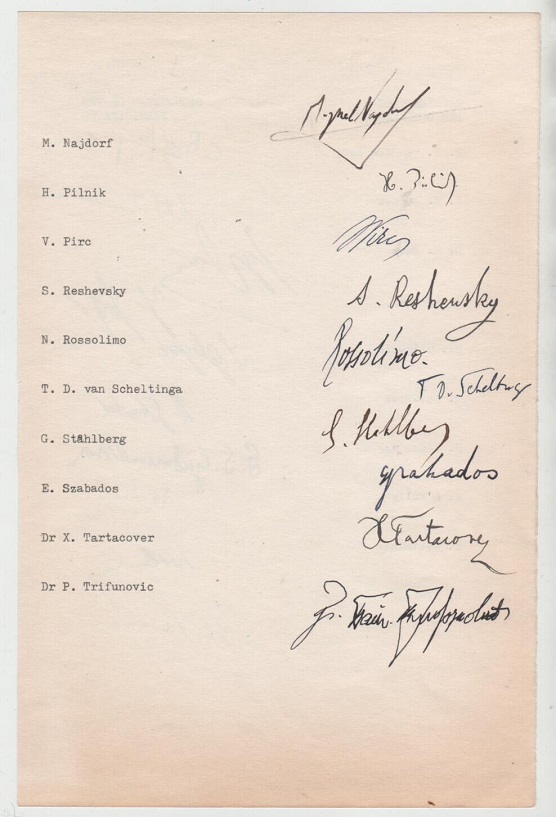 Miguel Najdorf
M. Najdorf
H. Pilnik
H. Pilnik
V. Pirc
Pirc
S. Reshevsky
S. Reshevsky
N. Rossolimo
Rossolimo.
T. D. van Scheltinga
T D. v. Scheltinga
G. Ståhlberg
G. Ståhlberg
E. Szabados
Dr X. Tartacover
Tartacover
Dr P. Trifunovic